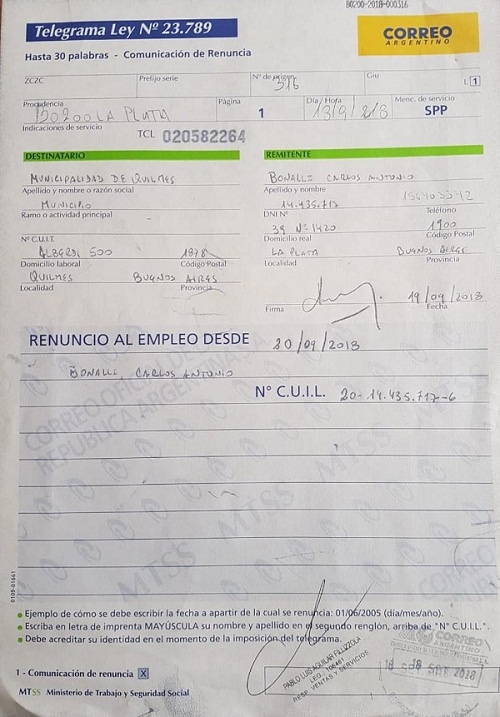 B0200-2018-000316
Telegrama Ley Nº 23.789
CORREO
ARGENTINO
Hasta 30 palabras - Comunicación de Renuncia
ZCZC
Prefijo serie
Nº de origen
316
Giu
L 1
Procedencia
B0200 LA PLATA
Página
1
Día / Hora
Menc. de servicio
SPP
Indicaciones de servicio
TCL 020582264
DESTINATARIO
MUNICIPALIDAD DE QUILMES
Apellido y nombre o razón social
MUNICIPIO
Ramo o actividad principal
Nº C.U.I.T.
ALBERDI 500
1878
Domicilio laboral
Código Postal
QUILMES
BUENOS AIRES
Localidad
Provincia
REMITENTE
BONALLI CARLOS ANTONIO
Apellido y nombre
14.435.717
DNI Nº
Teléfono
39 Nº 1420
1900
Domicilio real
Código Postal
LA PLATA
BUENOS AIRES
Localidad
Provincia
Firma
19/09/2018
Fecha
RENUNCIO AL EMPLEO DESDE 20/09/2018
BONALLI, CARLOS ANTONIO
Nº C.U.I.L. 20-14.435.717-6
CORREO OFICIAL
REPUBLICA ARGENTINA
MTSS
0109-01661
Ejemplo de cómo se debe escribir la fecha a apartir de la cual se renuncia: 01/06/2005 (día/mes/año).
Escriba en letra de imprenta MAYÚSCULA su nombre y apellido en el segundo renglón, arriba de "Nº C.U.I.L.".
Debe acreditar su identidad en el momento de la imposición del telegrama.
1 - Comunicación de renuncia X
MTSS Ministerio de Trabajo y Seguridad Social
PABLO LUIS AGUILAR FILIZZOLA
RESP. VENTAS Y SERVICIOS
CORREO
ARGENTINO
2018